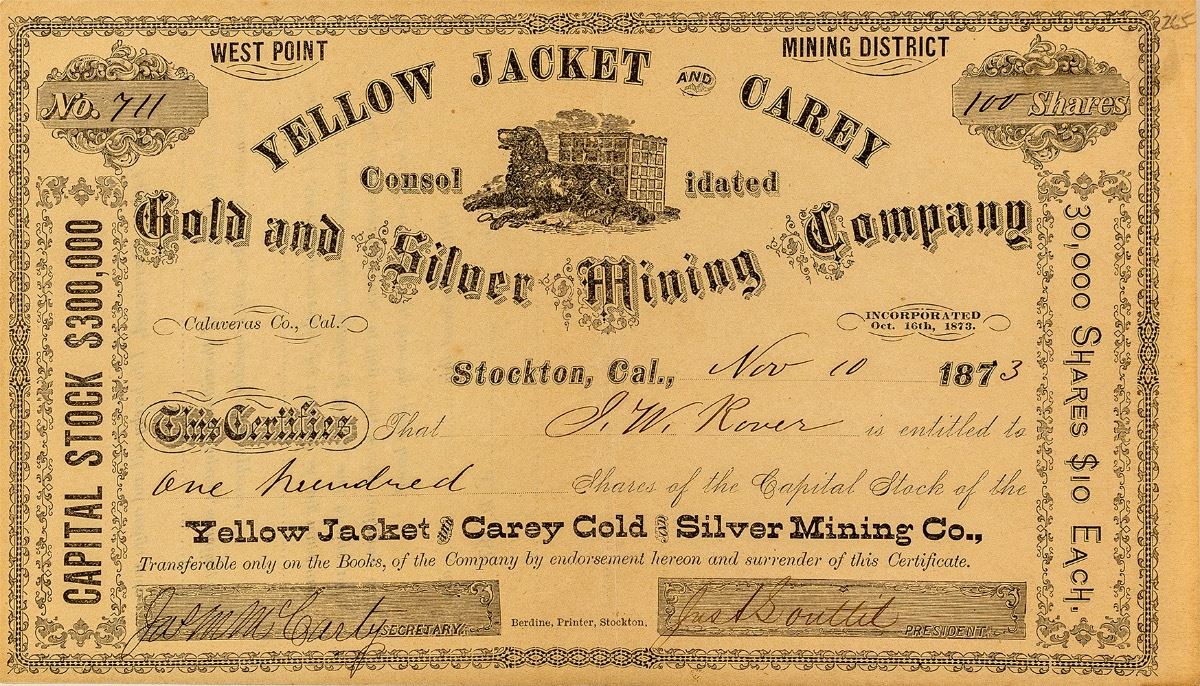 WEST POINT
MINING DISTRICT
No. 711
100 Shares
YELLOW JACKET AND CAREY
Consolidated
Gold and Silver Mining Company
Calaveras Co., Cal.
INCORPORATED
Oct. 16th, 1873.
Stockton, Cal., Nov 10 1873
This Certifies That J. W. Rover is entitled to
one hundred Shares of the Capital Stock of the
Yellow Jacket and Carey Gold and Silver Mining Co.,
Transferable only on the Books, of the Company by endorsement hereon and surrender of this Certificate.
Jas M McCarty SECRETARY.
Berdine, Printer, Stockton.
PRESIDENT.
CAPITAL STOCK $300,000
30,000 SHARES $10 EACH.